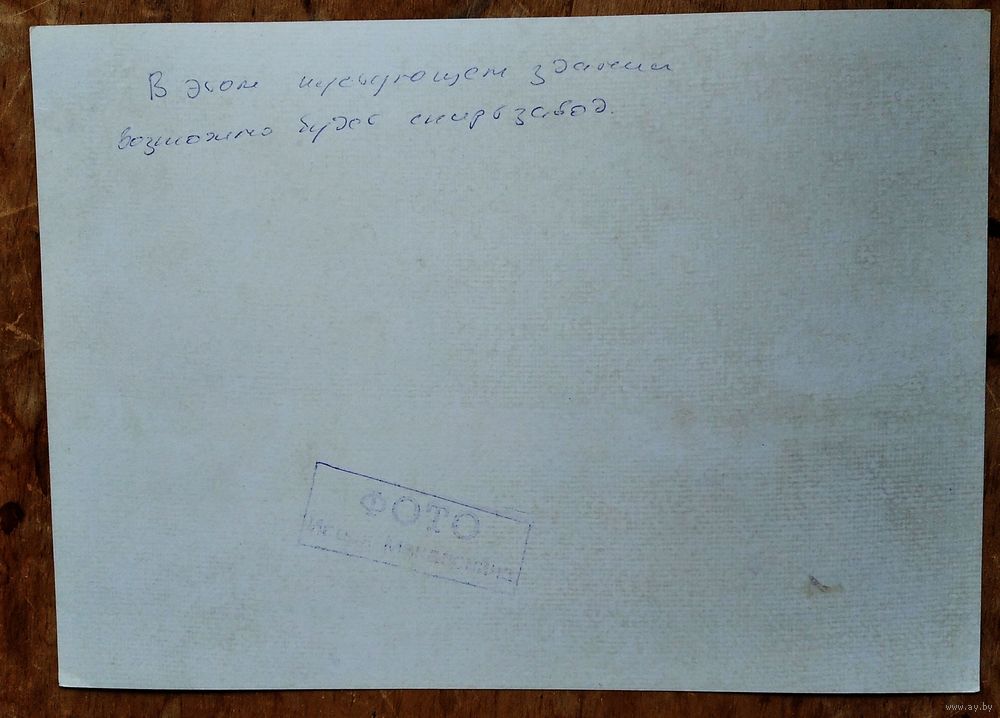 В этом пустующем здании
возможно будет спиртзавод.
ФОТО
www.ay.by